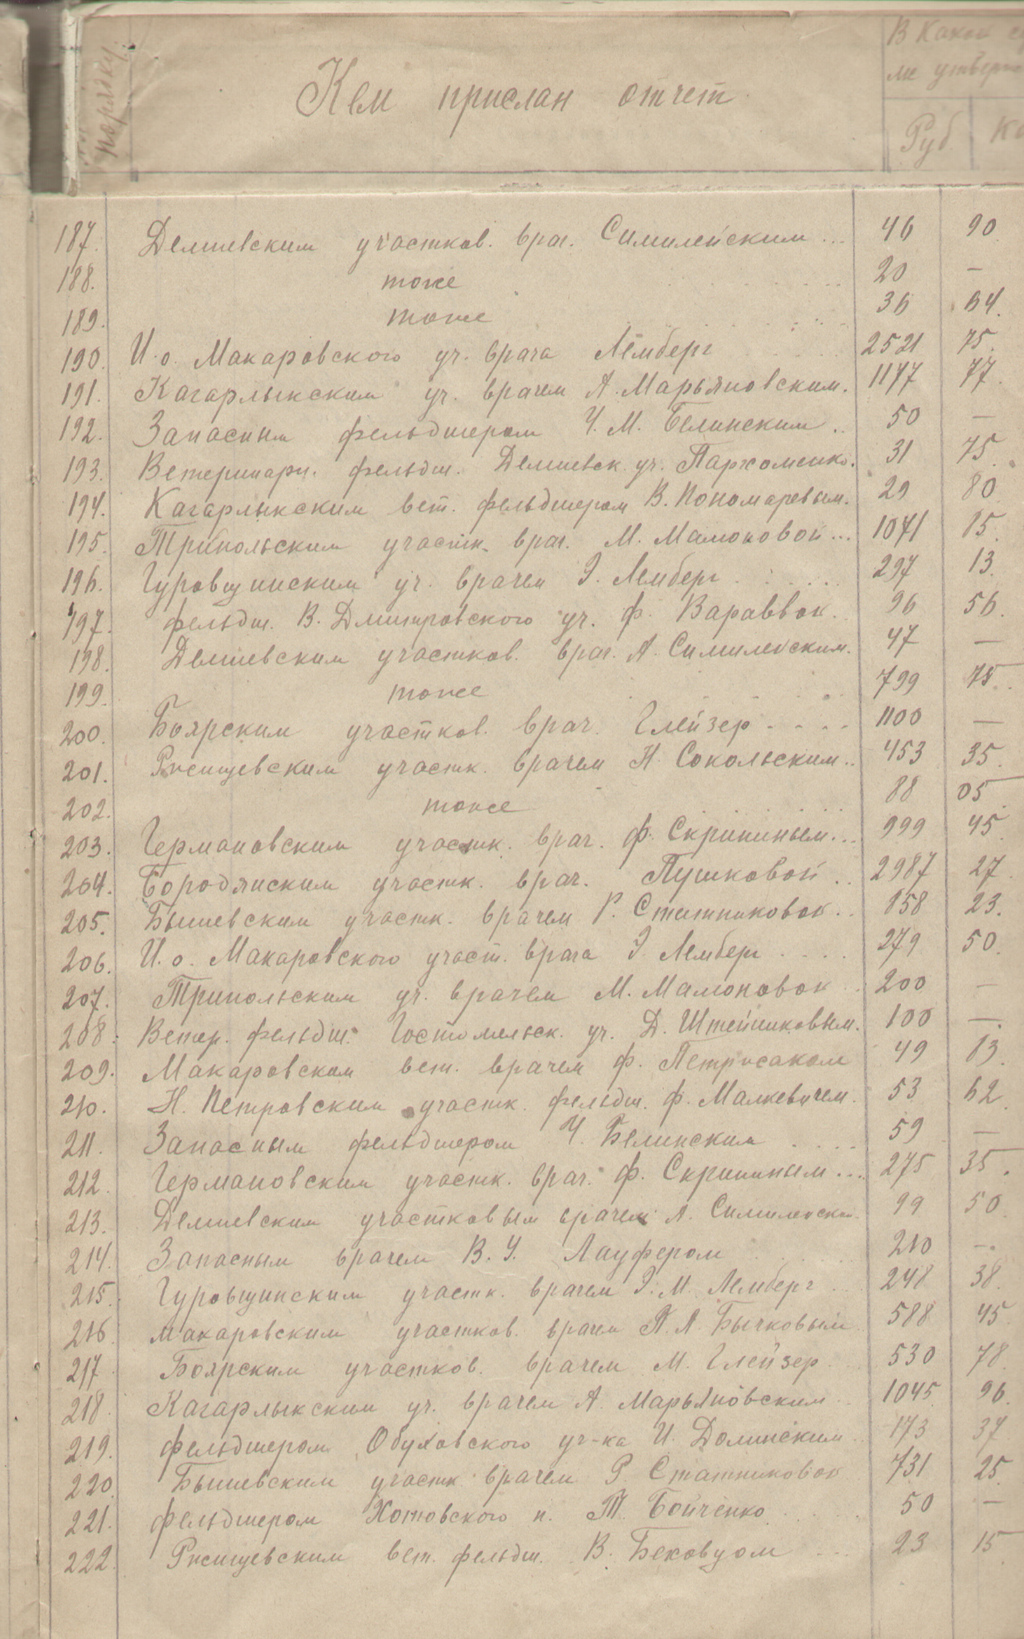 порядку
Кем прислан отчет
В какой су
ме утверж
Руб
Ко
187. Демиевским участков. врач. Симилейским ... 46 90
188. тоже 20 —
189. тоже 36 64.
190. И.о. Макаровского уч. врача Лемберг 2521 75.
191. Кагарлыкским уч. врачем А. Марьяновским. 1147 77
192. Запасным фельдшером Ч. М. Белинским .. 50 —
193. Ветеринарн. фельдш. Демиевск. уч. Пархоменко. 31 75.
194. Кагарлыкским вет. фельдшером В. Пономаревым. 29 80
195. Трипольским участк. врач. М. Мамоновой ... 1041 15.
196. Гуровщинским уч. врачем Э. Лемберг 297 13
197. фельдш. В. Дмитровского уч. Ф. Вараввой. 96 56
198. Демиевским участков. врач. А. Симилейским. 47 —
199. тоже 799 75
200. Боярским участков. врач. Глейзер 1100 —
201. Ржищевским участк. врачем Н. Сокольским.. 453 35.
202. тоже 88 05
203. Германовским участк. врач. Ф. Скрипиным... 999 45
204. Бородянским участк. врач. Пушковой .. 2987 27
205. Бышевским участк. врачем Р. Статниковой.. 158 23.
206. И.о. Макаровского участ. врача Э. Лемберг 279 50
207. Трипольским уч. врачем М. Мамоновой 200 —
208. Ветер. фельдш. Гостомельск. уч. Д. Штейниковым. 100 —
209. Макаровским вет. врачем Ф. 49 13
210. Н. Петровским участк. фельдш. Ф. Малкевичем. 53 62
211. Запасным фельдшером Ч. Белинским 59 —
212. Германовским участк. врач. Ф. Скрипиным... 275 35.
213. Демиевским участковым врачем А. 99 50
214. Запасным врачем В. У. Лауфером 210 —
215. Гуровщинским участк. врачем Э. М. Лемберг 248 38
216. Макаровским участков. врачем А. Бычковым 588 45
217 Боярским участков. врачем М. Глейзер 530 78
218. Кагарлыкским уч. врачем А. Марьяновским 1045 96
219. фельдшером Обуховского уч-ка И. Долинским 173 37
220. Бышевским участк. врачем Р. Статниковой 731 25
221. фельдшером Хотовского п. Т. Бойченко 50 —
222. Ржищевским вет. фельдш. В. 23 15